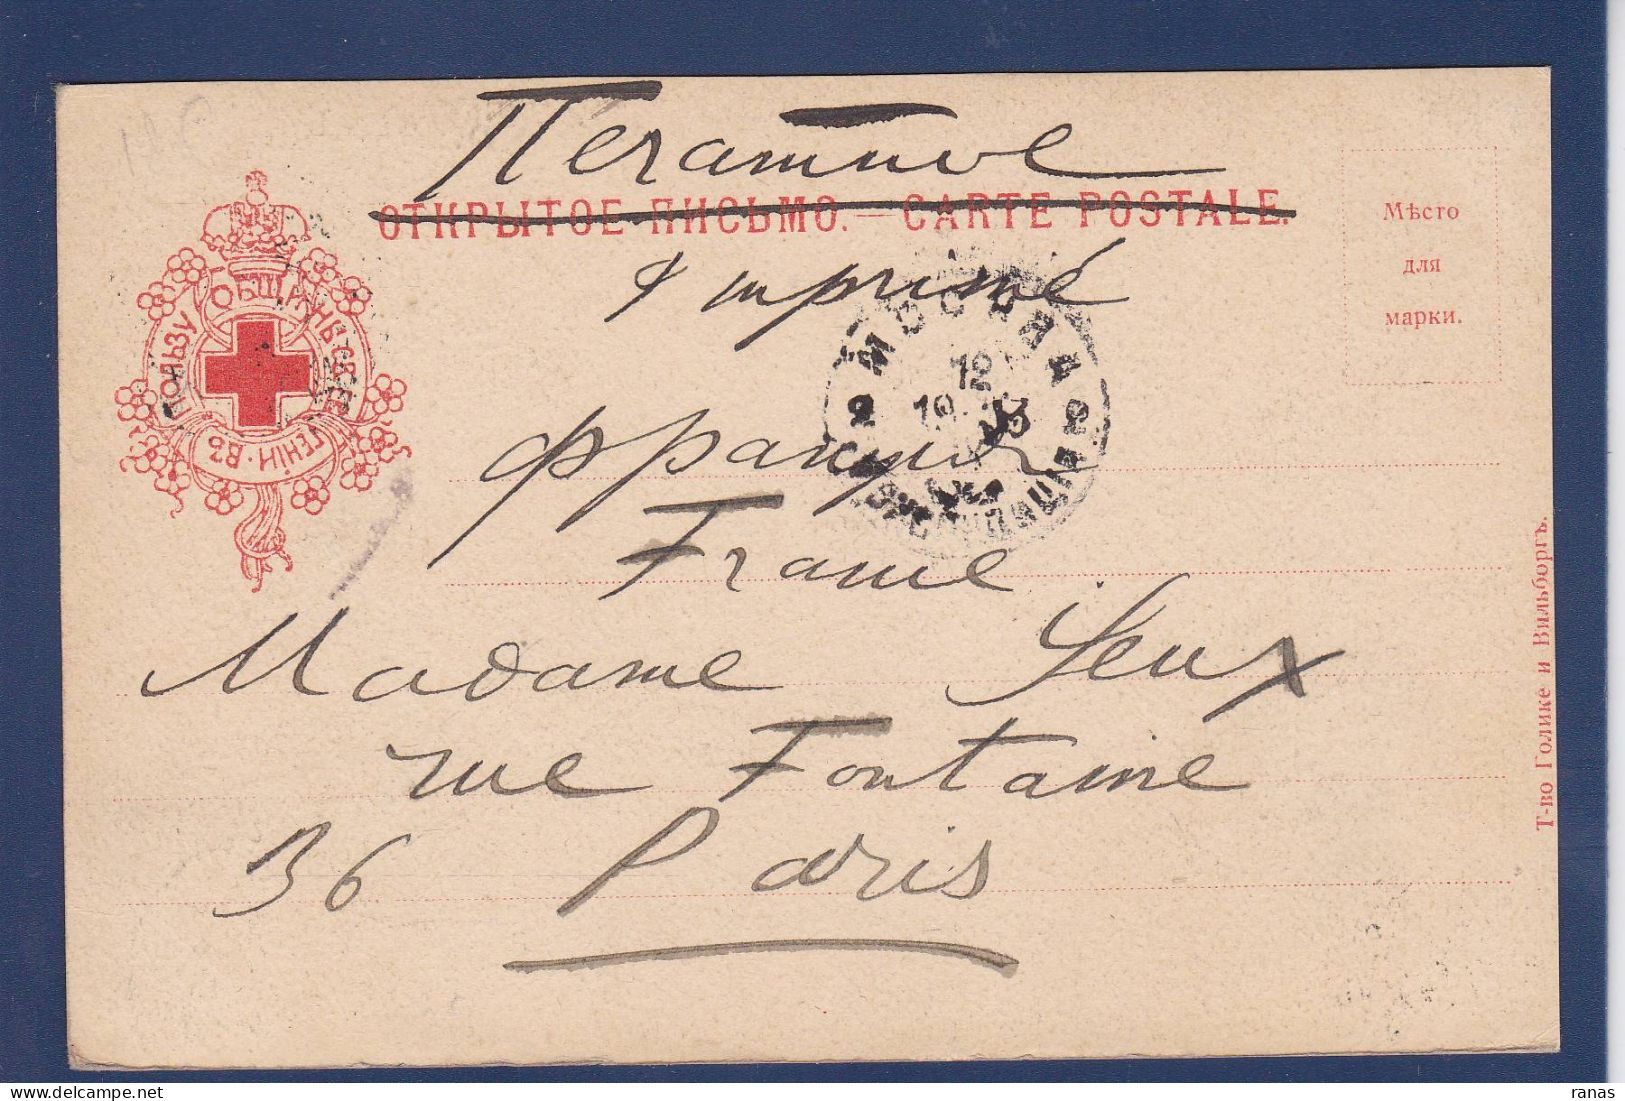 Печатное
ОТКРЫТОЕ ПИСЬМО. — CARTE POSTALE.
Imprimé
Мѣсто
для
марки.
ВЪ ПОЛЬЗУ ОБЩИНЫ СВ. ЕВГЕНІИ
МОСКВА
2 19 2
Франція
France
Madame
rue Fontaine
36 Paris
Т-во Голике и Вильборгъ.
ranas